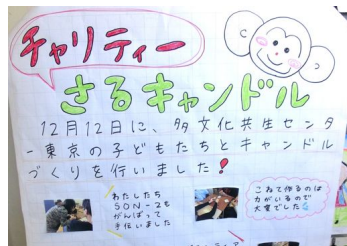 チャリティー
さるキャンドル
12月12日に、多文化共生センタ
ー東京の子どもたちとキャンドル
づくりを行いました!
わたしたち
SON-Zも
がんばって
手伝いました
こねて作るのは
力がいるので
大変でした